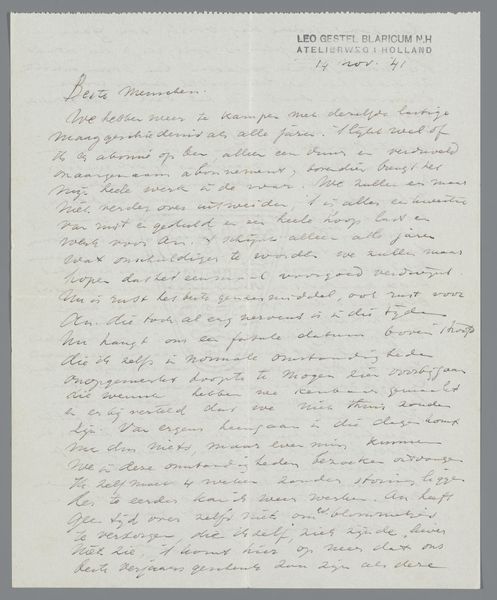 LEO GESTEL BLARICUM N.H
ATELIERWEG 1 HOLLAND
14 nov. '41
Beste Menschen.
We hebben weer te kampen met dezelfde lastige
maaggeschiedenis als alle jaren. 't lijkt wel of
ik er abonné op ben, alleen een duur en verduveld
onaangenaam abonnement, bovendien brengt het
mijn heele werk in de war. We zullen er maar
niet verder over uitweiden, 't is alles een kwestie
van rust en geduld en een heele hoop last en
werk voor An. 't schijnt alleen alle jaren
wat onschuldiger te worden we zullen maar
hopen dat het eenmaal voorgoed verdwijnt.
Nu is rust het beste geneesmiddel, ook rust voor
An. die toch al erg nerveus is in die tijden
Nu hangt ons een fatale datum boven 't hoofd
die ik zelfs in normale omstandigheden
onopgemerkt hoopte te mogen zien voorbijgaan
die wensch hebben we kenbaar gemaakt
en er bij verteld dat we niet thuis zouden
zijn. Van ergens heengaan in die dagen komt
nu dus niets, maar even min kunnen
we in deze omstandigheden bezoeken ontvangen
Ik zelf moet 4 weken zonder storing liggen
des te eerder kan ik weer werken. An heeft
geen tijd over zelfs niet om bloemetjes
te verzorgen, die ik zelf, ziek zijnde, liever
niet zie, 't komt hier op neer dat ons
beste verjaars geschenk dan zijn als deze